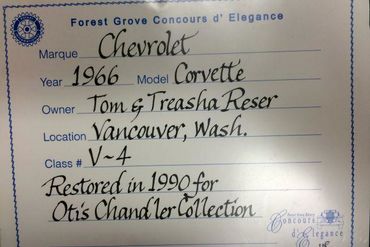 Forest Grove Concours d' Elegance
Marque Chevrolet
Year 1966 Model Corvette
Owner Tom & Treasha Reser
Location Vancouver, Wash.
Class # V~4
Restored in 1990 for
Otis Chandler Collection
Forest Grove Rotary
Concours
d' Elegance